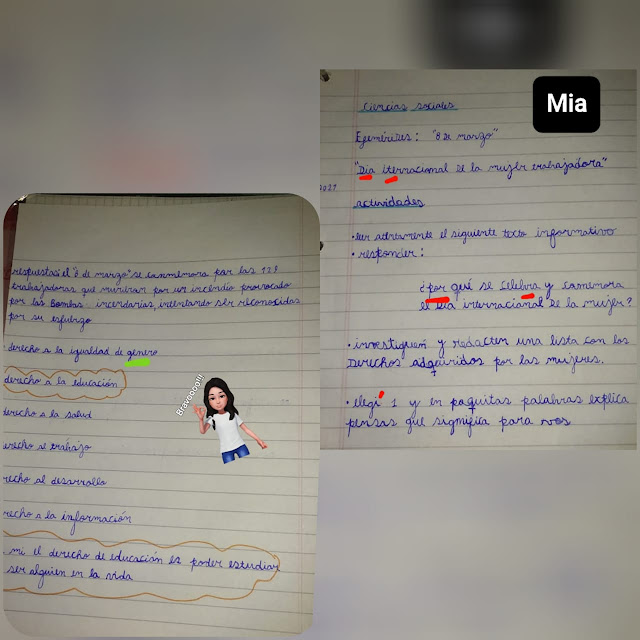 Mia
ciencias sociales
Efemérides: "8 de marzo"
"Dia Iternacional de la mujer trabajadora"
actividades
• leer atentamente el siguiente texto informativo
• responder:
¿por qué se celebra y conmemora
el dia internacional de la mujer?
• investiguen y redacten una lista con los
derechos adquiridos por las mujeres.
• elegí 1 y en poquitas palabras explica
pensas que significa para vos
respuesta: el "8 de marzo" se conmemora por las 129
trabajadoras que murieron por un incendio provocado
por las bombas incendiarias, intentando ser reconocidas
por su esfuerzo
derecho a la igualdad de genero
derecho a la educación
derecho a la salud
erecho al trabajo
recho al desarrollo
recho a la información
mi el derecho de educación es poder estudiar
ser alguien en la vida
Bravoooo!!!